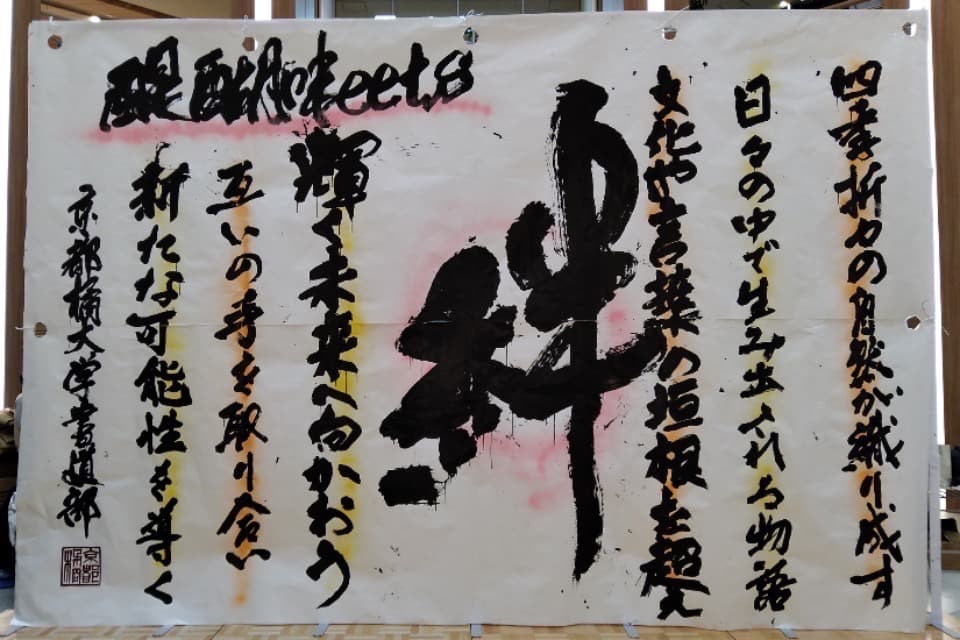 醍醐meets
四季折々の自然が織り成す
日々の中で生み出される物語
文化や言葉の垣根を超え
絆
輝く未来へ向かおう
互いの手を取り合い
新たな可能性を導く
京都橘大学書道部